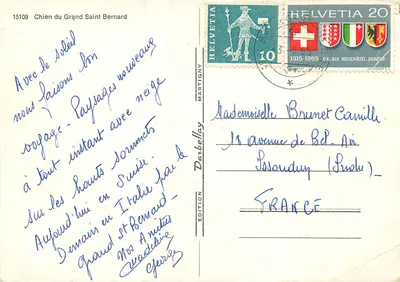 15109 Chien du Grand Saint Bernard
Avec le soleil
nous faisons bon
voyage - Paysages nouveaux
à tout instant avec neige
sur les hauts sommets
Aujourd'hui en Suisse.
Demain en Italie par le
grand St Bernard -
Nos Amitiés
EDITION Darbellay MARTIGNY
HELVETIA
10
HELVETIA 20
1815-1965 VALAIS NEUCHÂTEL GENÈVE
Mademoiselle Brunet Camille
18 avenue de Bel-Air
FRANCE